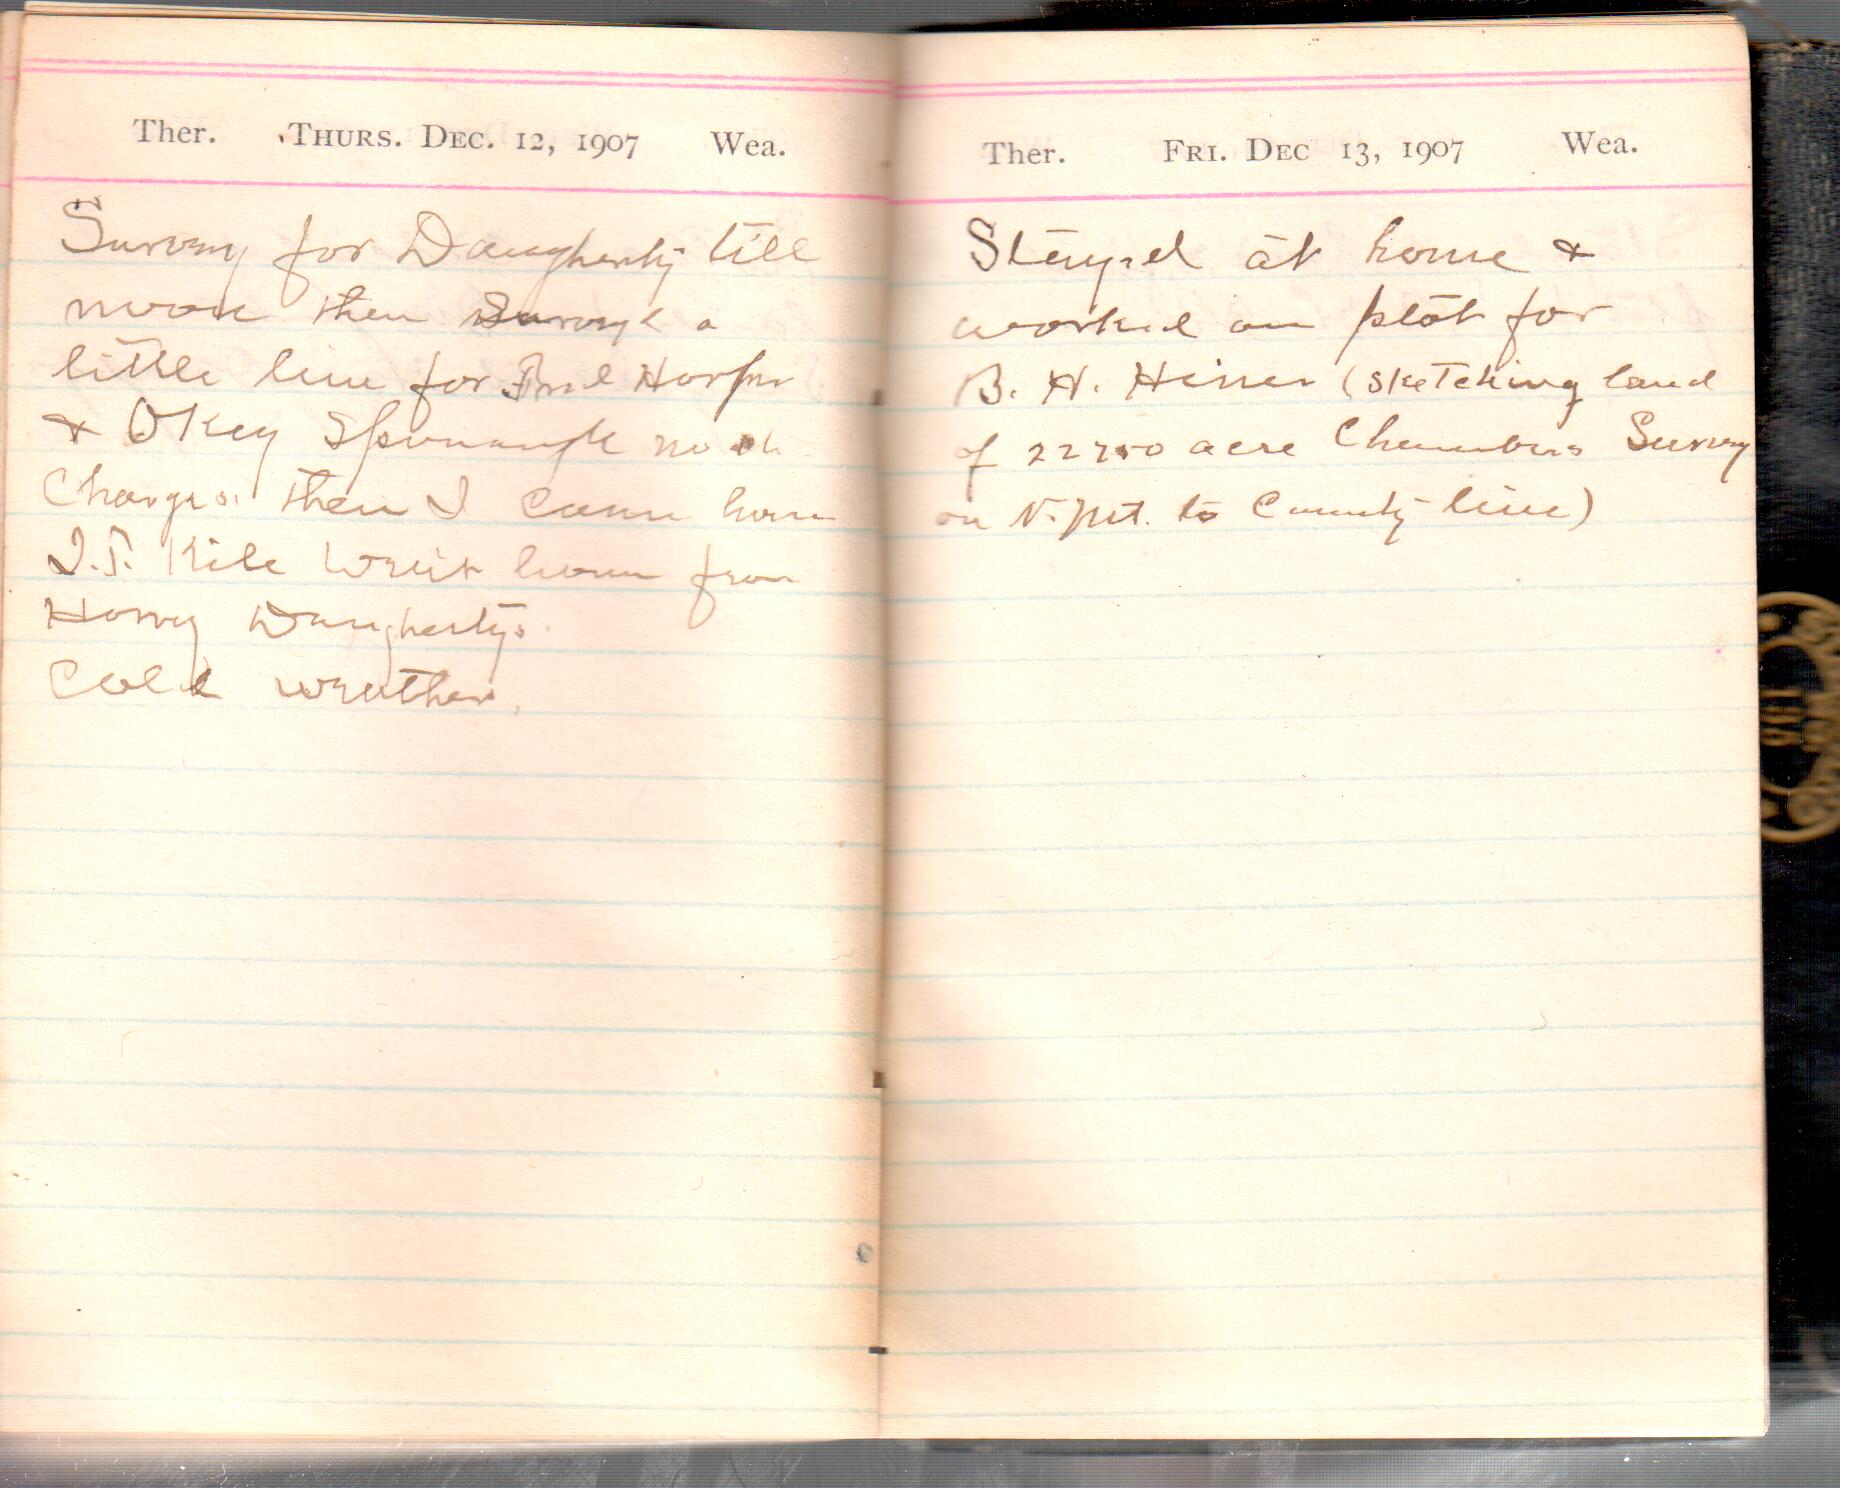 Ther. THURS. DEC. 12, 1907 Wea.
Survey for Daugherty till
noon then Survey a
little line for Fred Harper
& Okey Sponaugle no
Charges. then I came home
Kile went home from
Harvy Daughertys.
Cold weather.
Ther. FRI. DEC 13, 1907 Wea.
Stayed at home &
worked on plat for
B. H. Hiner (sketching land
of 22750 acre Chambers Survey
on N. Mt. to County line)